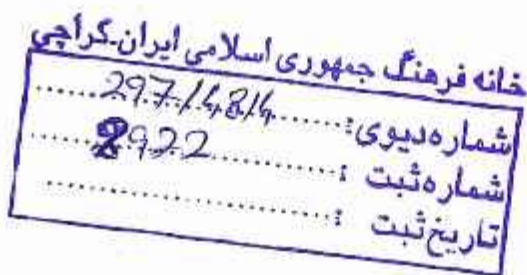 خانه فرهنگ جمهوری اسلامی ایران.کراچی
شماره دیوی: 297/4.84
شماره ثبت : 8922
تاریخ ثبت :